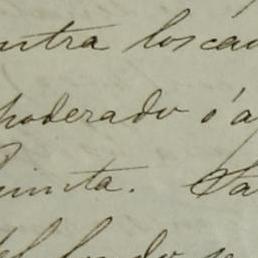 ntra los ca
poderado ó a
uinta. Sa
del fondo se